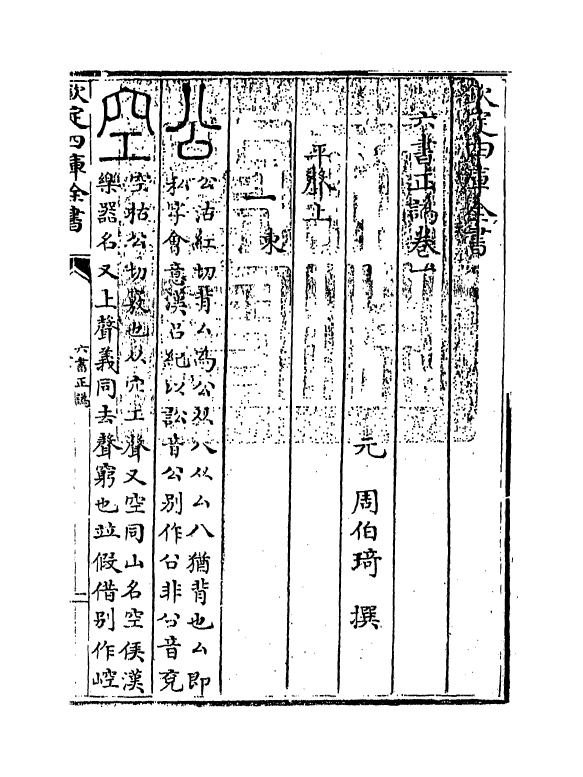 欽定四庫全書
六書正譌卷一
元 周伯琦 撰
平聲上
一東
公沽紅切背厶爲公从八从厶八猶背也厶即
私字會意漢呂紀以訟音公別作㕣非㕣音兗
空枯公切竅也从穴工聲又空同山名空侯漢
樂器名又上聲義同去聲窮也竝假借別作崆
欽定四庫全書
六書正譌
二